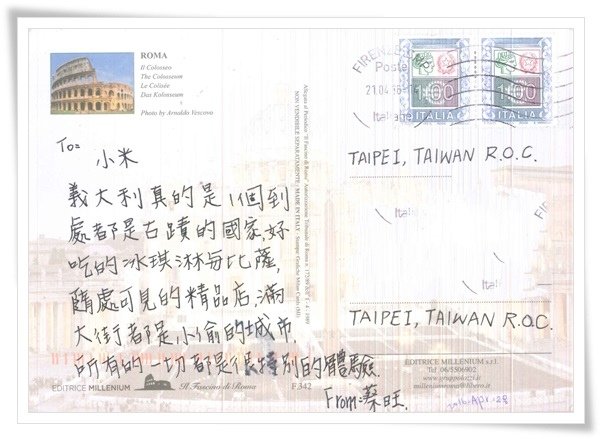 ROMA
Il Colosseo
The Colosseum
Le Colisée
Das Kolosseum
Photo by Arnaldo Vescovo
To:
小米
義大利真的是1個到
處都是古蹟的國家,好
吃的冰琪淋與比薩,
隨處可見的精品店,滿
大街都是小偷的城市.
所有的一切都是很特別的體驗.
From:蔡旺.
2016.Apr.28
EDITRICE MILLENIUM
Il Fascino di Roma
F.342
NON VENDIBILE SEPARATAMENTE / MADE IN ITALY
FIRENZE
Poste
21.04
Italiane
1,00
ITALIA
1,00
ITALIA
TAIPEI, TAIWAN R.O.C.
TAIPEI, TAIWAN R.O.C.
EDITRICE MILLENIUM s.r.l.
Tel 06/5506902